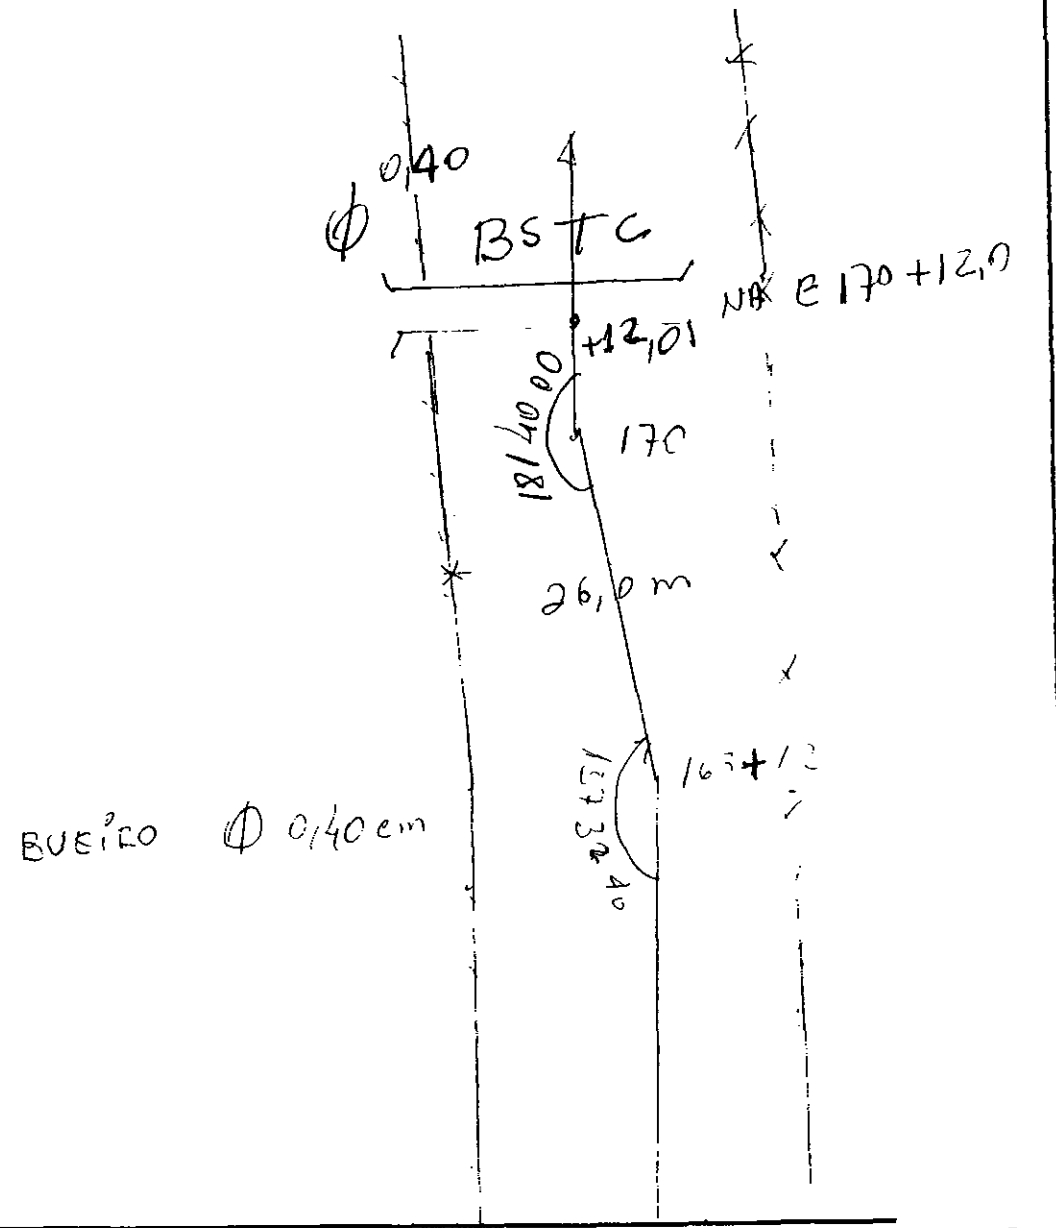 0,40
Φ
BSTC
NA E 170+12,0
+12,01
181 40 00
170
26,0 m
BUEIRO Φ 0,40 cm